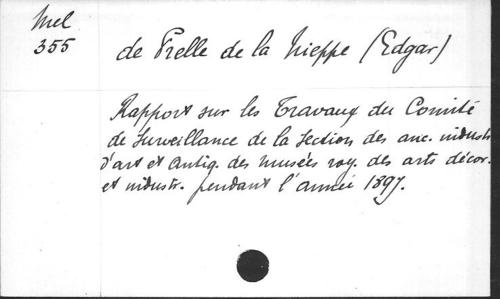 Mel
355
de Prelle de la Nieppe (Edgar)
Rapport sur les Travaux du Comité
de surveillance de la section des anc. industr
d'art et Antiq. des Musées roy. des arts décor.
et industr. pendant l'année 1897.